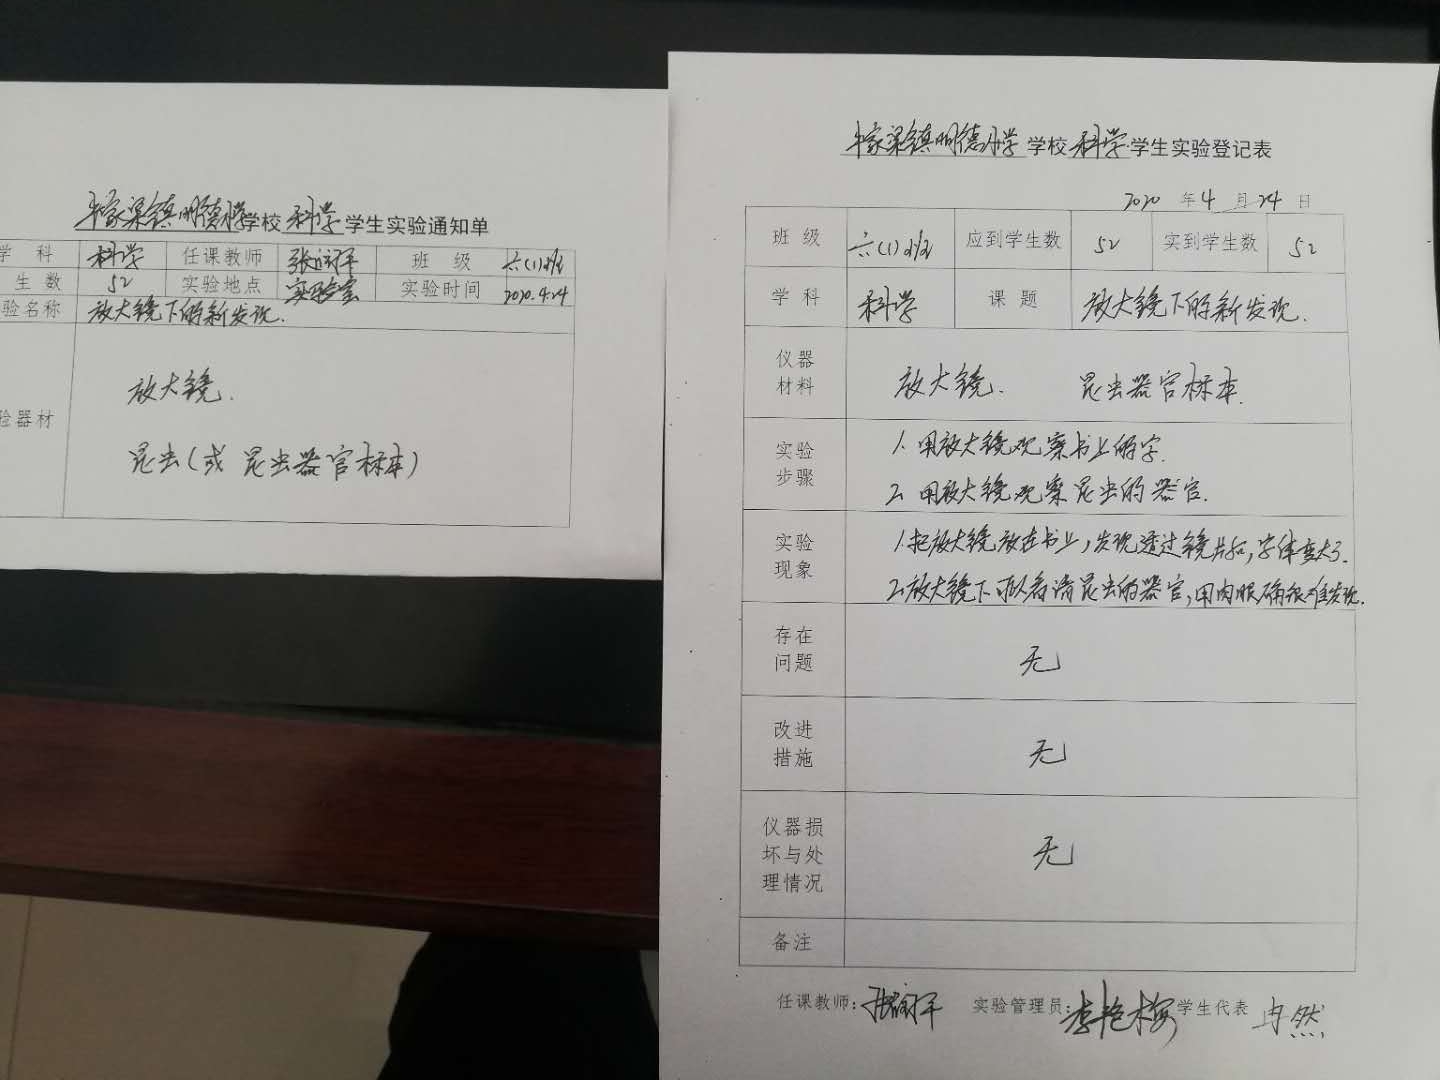 牛家梁镇明德小学学校科学学生实验通知单
学 科 科学 任课教师 班 级 六(1)班
生数 52 实验地点 实验室 实验时间 2020.4.24
验名称 放大镜下的新发现.
验器材
放大镜.
昆虫(或昆虫器官标本)
牛家梁镇明德小学 学校 科学 学生实验登记表
2020 年 4 月 24 日
班 级 六(1)班 应到学生数 52 实到学生数 52
学 科 科学 课 题 放大镜下的新发现.
仪器材料 放大镜. 昆虫器官标本.
实验步骤
1. 用放大镜观察书上的字.
2. 用放大镜观察昆虫的器官.
实验现象
1.把放大镜放在书上,发现透过镜片后,字体变大了.
2.放大镜下可以看清昆虫的器官,用肉眼确很难发现.
存在问题 无
改进措施 无
仪器损坏与处理情况 无
备注
任课教师: 实验管理员: 李艳梅 学生代表 冉然